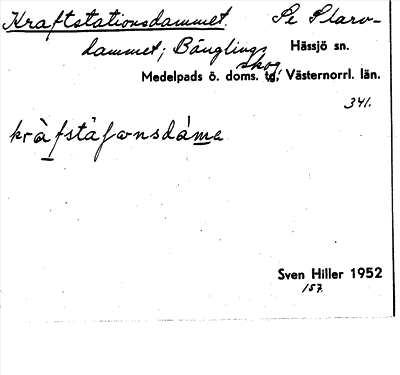 Kraftstationsdammet. Se Plarv-
dammet; Bänglings
skog Hässjö sn.
Medelpads ö. doms. tg, Västernorrl. län.
341.
kràfstàʃonsdáma
Sven Hiller 1952
157.